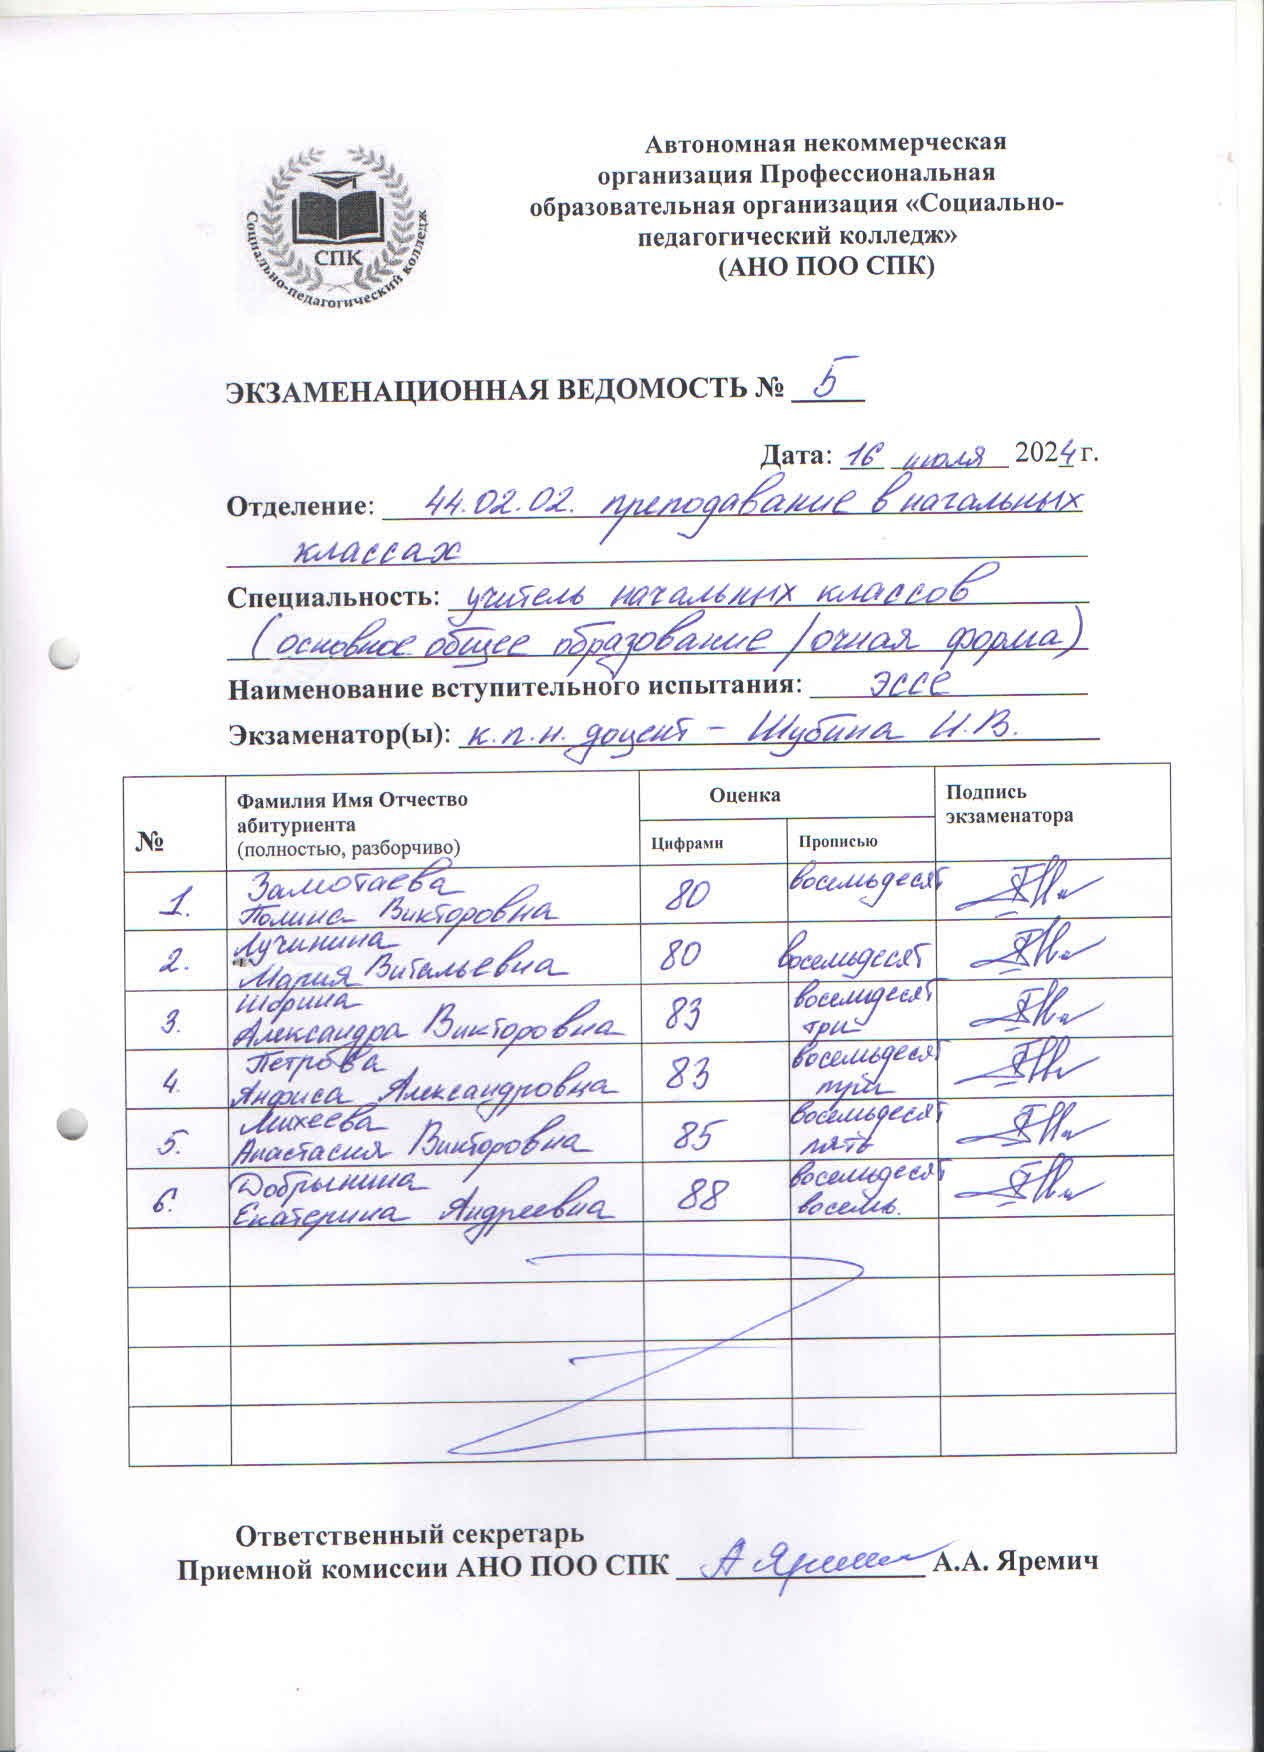 Автономная некоммерческая
организация Профессиональная
образовательная организация «Социально-
педагогический колледж»
(АНО ПОО СПК)
СПК
Социально-педагогический колледж
ЭКЗАМЕНАЦИОННАЯ ВЕДОМОСТЬ № 5
Дата: 16 июля 2024 г.
Отделение: 44.02.02. преподавание в начальных
классах
Специальность: учитель начальных классов
(основное общее образование /очная форма)
Наименование вступительного испытания: эссе
Экзаменатор(ы): к.п.н. доцент - Шубина И.В.
№ Фамилия Имя Отчество абитуриента (полностью, разборчиво) Оценка Подпись экзаменатора
Цифрами Прописью
1. Замотаева Полина Викторовна 80 восемьдесят
2. Лучинина Мария Витальевна 80 восемьдесят
3. Шорина Александра Викторовна 83 восемьдесят три
4. Петрова Анфиса Александровна 83 восемьдесят три
5. Михеева Анастасия Викторовна 85 восемьдесят пять
6. Добрынина Екатерина Андреевна 88 восемьдесят восемь.
Ответственный секретарь
Приемной комиссии АНО ПОО СПК А.А. Яремич